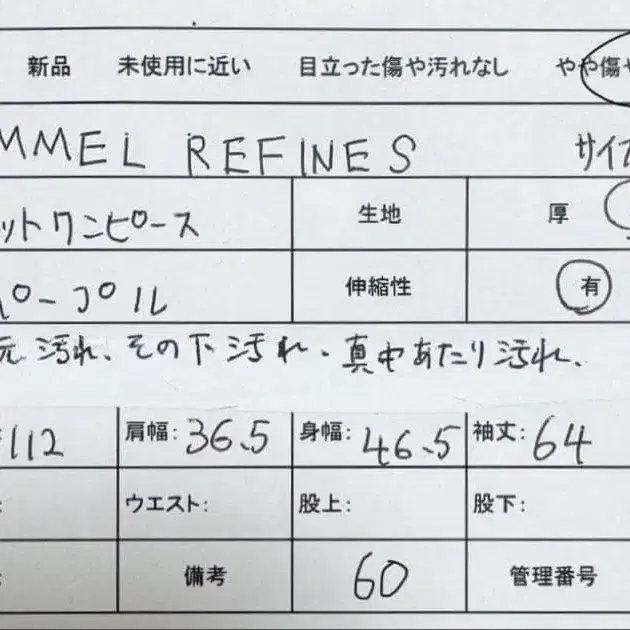 新品 未使用に近い 目立った傷や汚れなし やや傷や
MMEL REFINES サイズ
ットワンピース 生地 厚
パープル 伸縮性 有
元汚れ、その下汚れ、真中あたり汚れ、
112 肩幅: 36.5 身幅: 46.5 袖丈: 64
ウエスト: 股上: 股下:
備考 60 管理番号